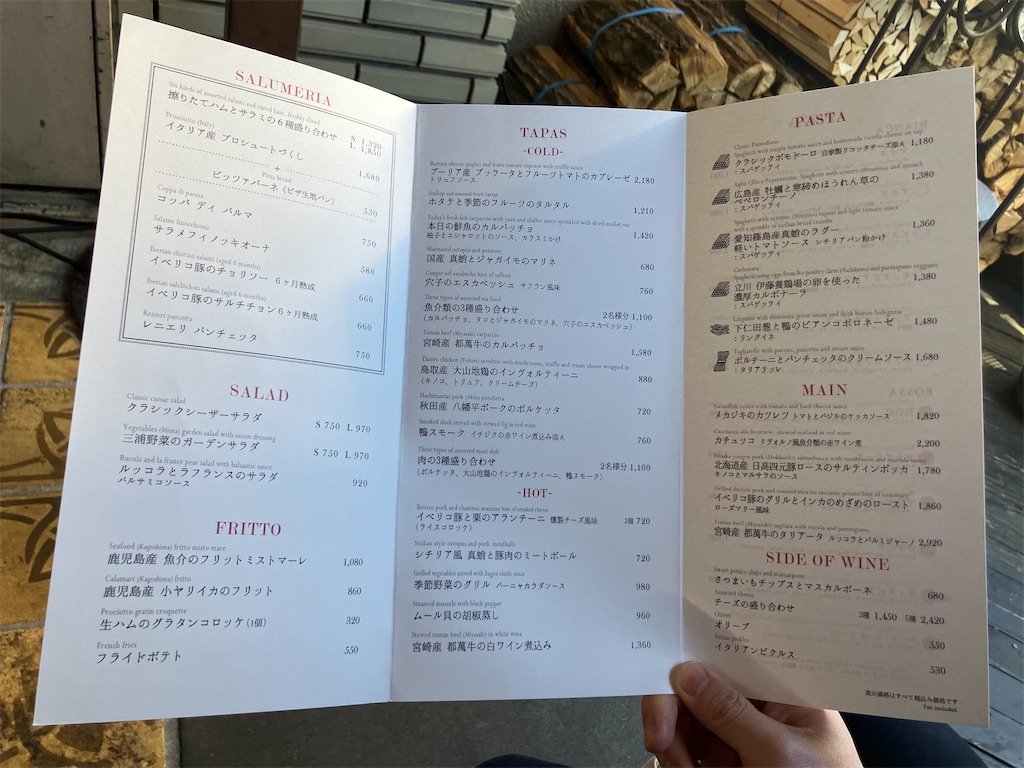 SALUMERIA
Six kinds of assorted salami and cured ham, freshly sliced
擦りたてハムとサラミの6種盛り合わせ S 1,320
L 1,850
Prosciutto (Italy)
イタリア産 プロシュートづくし 1,680
+
Pizza bread
ピッツァパーネ(ピザ生地パン) 530
Coppa di parma
コッパ ディ パルマ 750
Salame finocchiona
サラメフィノッキオーナ 580
Iberian chorizo salami (aged 6 months)
イベリコ豚のチョリソー 6ヶ月熟成 660
Iberian salchichon salami (aged 6 months)
イベリコ豚のサルチチョン6ヶ月熟成 660
Renieri pancetta
レニエリ パンチェッタ 750
SALAD
Classic caesar salad
クラシックシーザーサラダ S 750 L 970
Vegetables (Miura) garden salad with onion dressing
三浦野菜のガーデンサラダ S 750 L 970
Rucola and la france pear salad with balsamic sauce
ルッコラとラフランスのサラダ 920
バルサミコソース
FRITTO
Seafood (Kagoshima) fritto misto mare
鹿児島産 魚介のフリットミストマーレ 1,080
Calamari (Kagoshima) fritto
鹿児島産 小ヤリイカのフリット 860
Prociutto gratin croquette
生ハムのグラタンコロッケ(1個) 320
French fries
フライドポテト 550
TAPAS
-COLD-
Burrata cheese (puglia) and fruits tomato caprese with truffle sauce
プーリア産 ブッラータとフルーツトマトのカプレーゼ 2,180
トリュフソース
Scallop and seasonal fruits tartar
ホタテと季節のフルーツのタルタル 1,210
Today's fresh fish carpaccio with yuzu and shallot sauce sprinkled with dried mullet roe
本日の鮮魚のカルパッチョ 1,420
柚子とエシャロットのソース、カラスミかけ
Marinated octopus and potatoes
国産 真蛸とジャガイモのマリネ 680
Conger eel escabeche hint of saffron
穴子のエスカベッシュ サフラン風味 760
Three types of assorted sea food
魚介類の3種盛り合わせ 2名様分 1,100
(カルパッチョ、タコとジャガイモのマリネ、穴子のエスカベッシュ)
Toman beef (Miyazaki) carpaccio
宮崎産 都萬牛のカルパッチョ 1,580
Daisen chicken (Tottori) involtini with mushrooms, truffle and cream cheese wrapped in
鳥取産 大山地鶏のイングォルティーニ 880
(キノコ、トリュフ、クリームチーズ)
Hachimantai pork (Akita) porchetta
秋田産 八幡平ポークのポルケッタ 720
Smoked duck served with stewed fig in red wine
鴨スモーク イチジクの赤ワイン煮込み添え 760
Three types of assorted meat dish
肉の3種盛り合わせ 2名様分 1,100
(ポルケッタ、大山地鶏のイングォルティーニ、鴨スモーク)
-HOT-
Iberico pork and chestnut arancini hint of smoked cheese
イベリコ豚と栗のアランチーニ 燻製チーズ風味 2個 720
(ライスコロッケ)
Sicilian style octopus and pork meatballs
シチリア風 真蛸と豚肉のミートボール 720
Grilled vegetables served with bagna cauda sauce
季節野菜のグリル バーニャカウダソース 980
Steamed mussels with black pepper
ムール貝の胡椒蒸し 960
Stewed toman beef (Miyazaki) in white wine
宮崎産 都萬牛の白ワイン煮込み 1,360
PASTA
Classic Pomodoro:
Spaghetti with simple tomato sauce and homemade ricotta cheese on top
クラシックポモドーロ 自家製リコッタチーズ添え 1,180
:スパゲッティ
Aglio Olio e Peperoncino: Spaghetti with oysters (Hiroshima) and spinach
広島産 牡蠣と寒締めほうれん草の 1,380
ペペロンチーノ
:スパゲッティ
Spaghetti with octopus (Shinojima) ragout and light tomato sauce
with a sprinkle of sicilian bread crumbs
愛知篠島産真蛸のラグー 1,360
軽いトマトソース シチリアパン粉かけ
:スパゲッティ
Carbonara:
Spaghetti using eggs from Ito poultry farm (Tachikawa) and parmigiano reggiano
立川 伊藤養鶏場の卵を使った 1,380
濃厚カルボナーラ
:スパゲッティ
Linguine with shimonita green onion and duck bianco bolognese
下仁田葱と鴨のビアンコボロネーゼ 1,480
:リングイネ
Tagliatelle with porcino, pancetta and cream sauce
ポルチーニとパンチェッタのクリームソース 1,680
:タリアテッレ
MAIN
Swordfish cutlet with tomato and basil checca sauce
メカジキのカツレツ トマトとバジルのケッカソース 1,820
Cacciucco alla livornese -stewed seafood in red wine-
カチュッコ リヴォルノ風魚介類の赤ワイン煮 2,200
Hidaka yongen pork (Hokkaido) saltimbocca with mushrooms and marsala sauce
北海道産 日高四元豚ロースのサルティンボッカ 1,780
キノコとマルサラのソース
Grilled iberico pork and roasted inca no mezame potato hint of rosemary
イベリコ豚のグリルとインカのめざめのロースト 1,860
ローズマリー風味
Toman beef (Miyazaki) tagliata with rucola and parmigiano
宮崎産 都萬牛のタリアータ ルッコラとパルミジャーノ 2,920
SIDE OF WINE
Sweet potato chips and mascarpone
さつまいもチップスとマスカルポーネ 680
Assorted cheese
チーズの盛り合わせ 3種 1,450 5種 2,420
Olives
オリーブ 550
Italian pickles
イタリアンピクルス 530
表示価格はすべて税込み価格です
Tax included.